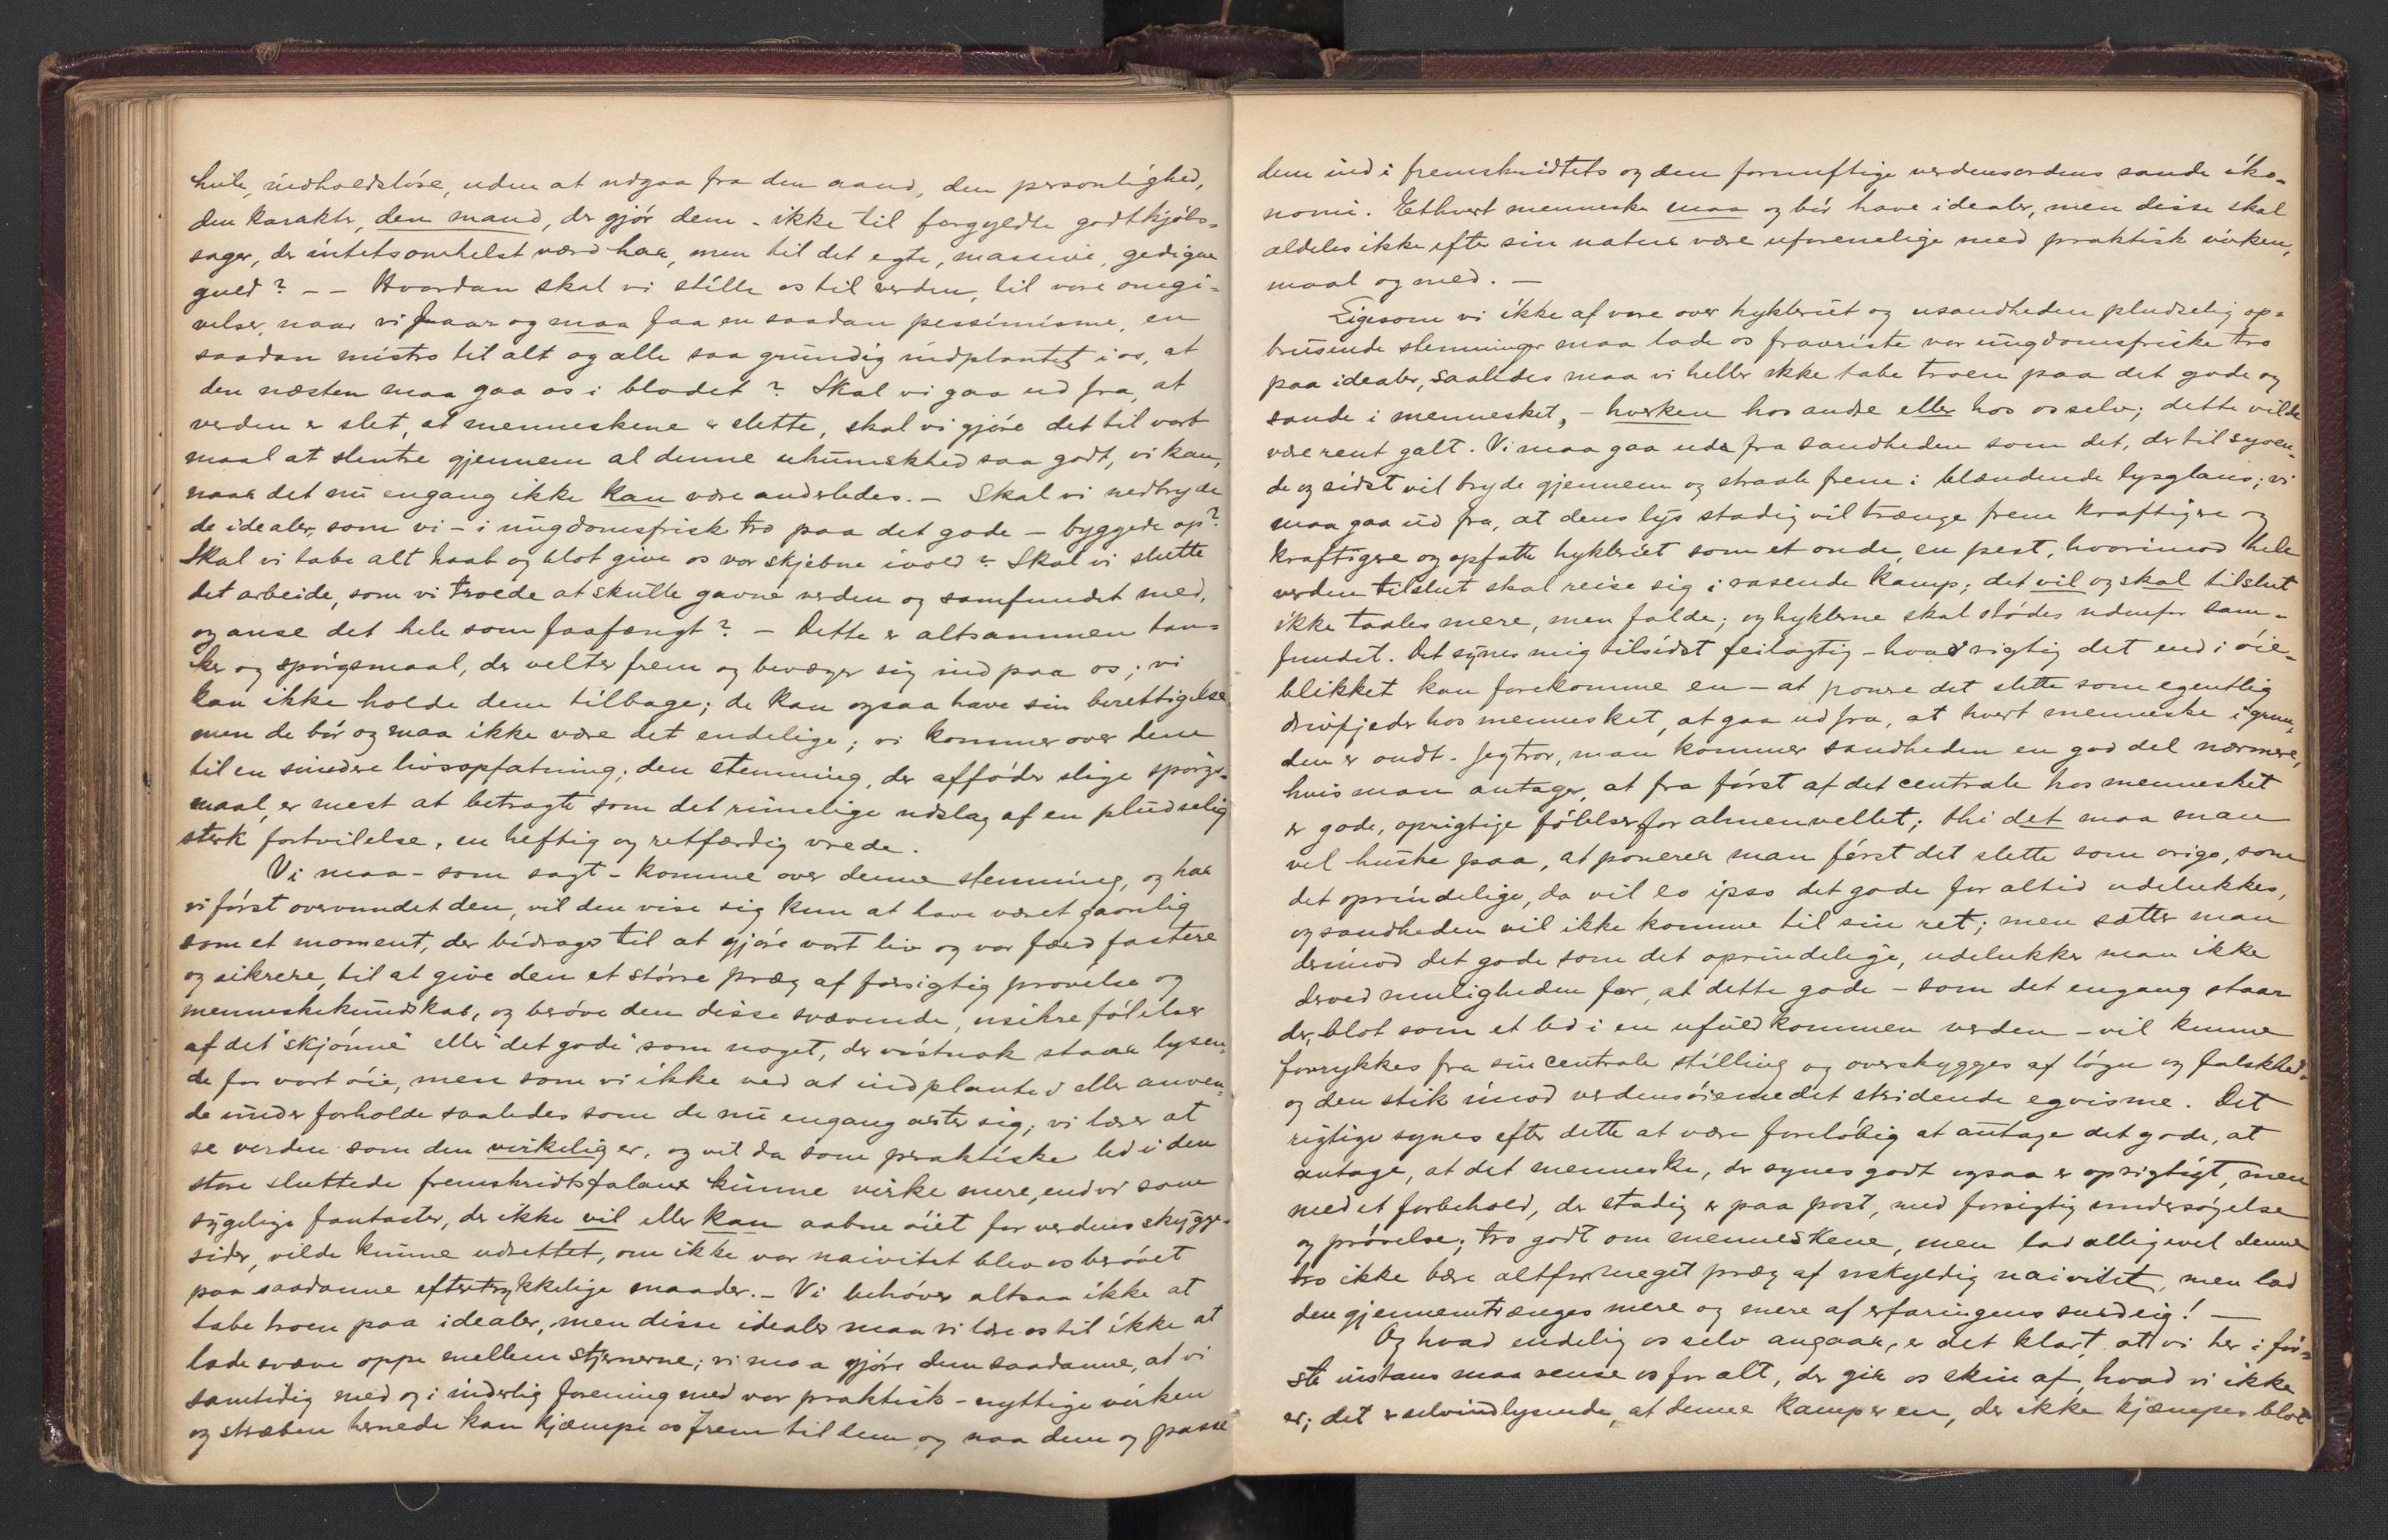 hule, indholdsløse, uden at udgaa fra den aand, den personlighed,
den karakter, den mand, der gjør dem - ikke til forgyldte godtkjøbs-
sager, der intetsomhelst værd har, men til det egte, massive, gedigne
guld? - - Hvordan skal vi stille os til verden, til vore omgi-
velser, naar vi faar og maa faa en saadan pessimisme, en
saadan mistro til alt og alle saa grundig indplantet i os, at
den næsten maa gaa os i blodet? Skal vi gaa ud fra, at
verden er slet, at menneskene er slette, skal vi gjøre det til vort
maal at slentre gjennem al denne uhumskhed saa godt, vi kan,
naar det nu engang ikke kan være anderledes. - Skal vi nedbryde
de idealer, som vi - i ungdomsfrisk tro paa det gode - byggede op?
Skal vi tabe alt haab og blot give os vor skjebne ivold? Skal vi slutte
det arbeide, som vi troede at skulle gavne verden og samfundet med,
og anse det hele som faafængt? - Dette er altsammen tan-
ker og spørgsmaal, der velter frem og bevæger sig ind paa os; vi
kan ikke holde dem tilbage; de kan ogsaa have sin berettigelse
men de bør og maa ikke være det endelige; vi kommer over dem
til en sundere livsopfatning; den stemning, der afføder slige spørgs-
maal, er mest at betragte som det rimelige udslag af en pludselig
sterk fortvilelse, en heftig og retfærdig vrede.
Vi maa - som sagt - komme over denne stemning, og har
vi først overvundet den, vil den vise sig kun at have været gavnlig
som et moment, der bidrager til at gjøre vort liv og vor færd fastere
og sikrere, til at give den et større præg af forsigtig prøvelse og
menneskekundskab, og berøve den disse svævende, usikre følelser
af det "skjønne" eller "det gode" som noget, der vistnok staar lysen-
de for vort øie, men som vi ikke ved at indplante i eller anven-
de under forholde saaledes som de nu engang arter sig; vi lærer at
se verden som den virkelig er, og vil da som praktiske led i den
store sluttede fremskridtsfalanx kunne virke mere, end vi som
sygelige fantaster, der ikke vil eller kan aabne øiet for verdens skygge-
sider, vilde kunne udrettet, om ikke vor naivitet blev os berøvet
paa saadanne eftertrykkelige maader. - Vi behøver altsaa ikke at
tabe troen paa idealer, men disse idealer maa vi lære os til ikke at
lade svæve oppe mellem stjernerne; vi maa gjøre dem saadanne, at vi
samtidig med og i inderlig forening med vor praktisk-nyttige virken
og stræben hernede kan kjæmpe os frem til dem og naa dem og passe
dem ind i fremskridtets og den fornuftige verdensordens sande øko-
nomi. Ethvert menneske maa og bør have idealer, men disse skal
aldeles ikke efter sin natur være uforenelige med praktisk virken,
maal og med. -
Ligesom vi ikke af vore over hykleriet og usandheden pludselig op-
brusende stemninger maa lade os fravriste vor ungdomsfriske tro
paa idealer, saaledes maa vi heller ikke tabe troen paa det gode og
sande i mennesket, - hverken hos andre eller hos os selv; dette vilde
være rent galt. Vi maa gaa ud fra sandheden som det, der til syven-
de og sidst vil bryde gjennem og straale frem i blændende lysglans; vi
maa gaa ud fra, at dens lys stadig vil trænge frem kraftigere og
kraftigere og opfatte hykleriet som et onde, en pest, hvorimod hele
verden tilslut skal reise sig i rasende kamp; det vil og skal tilslut
ikke taales mere, men falde; og hyklerne skal stødes udenfor sam-
fundet. Det synes mig tilsidst feilagtig - hvad rigtig det end i øie-
blikket kan forekomme en - at ponere det slette som egentlig
drivfjeder hos mennesket, at gaa ud fra, at hvert menneske i grun-
den er ondt. Jeg tror, man kommer sandheden en god del nærmere,
hvis man antager, at fra først af det centrale hos mennesket
er gode, oprigtige følelser for almenvellet; thi det maa man
vel huske paa, at ponerer man først det slette som origo, som
det oprindelige, da vil eo ipso det gode for altid udelukkes,
og sandheden vil ikke komme til sin ret; men sætter man
derimod det gode som det oprindelige, udelukker man ikke
derved muligheden for, at dette gode - som det engang staar
der, blot som et led i en ufuldkommen verden - vil kunne
forrykkes fra sin centrale stilling og overskygges af løgn og falskhed
og den stik imod verdensøiemedet stridende egoisme. Det
rigtige synes efter dette at være foreløbig at antage det gode, at
antage, at det menneske, der synes godt ogsaa er oprigtigt, men
med et forbehold, der stadig er paa post, med forsigtig undersøgelse
og prøvelse; tro godt om menneskene, men lad alligevel denne
tro ikke bære altfor meget præg af uskyldig naivitet, men lad
den gjennemtrænges mere og mere af erfaringens surdeig! -
Og hvad endelig os selv angaar, er det klart, at vi her i før-
ste instans maa rense os for alt, der gir os skin af, hvad vi ikke
er; det er selvindlysende, at denne kamp er en, der ikke kjæmpes blot